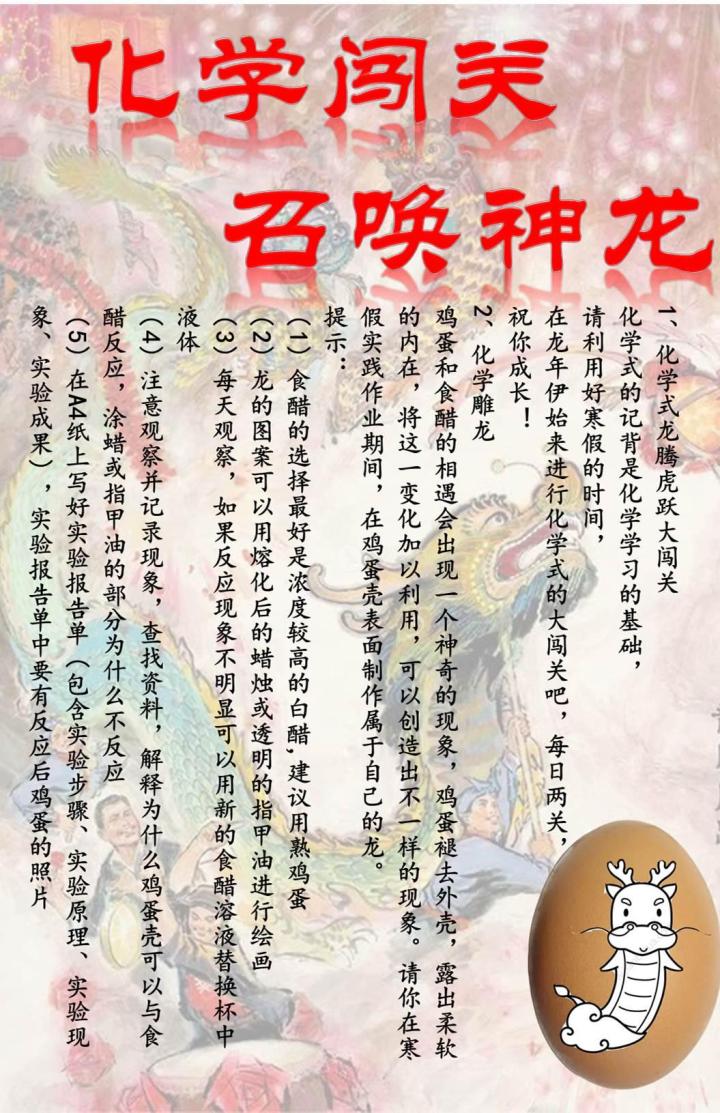 化学闯关
召唤神龙
1、化学式龙腾虎跃大闯关
化学式的记背是化学学习的基础，
请利用好寒假的时间，
在龙年伊始来进行化学式的大闯关吧，每日两关，
祝你成长！
2、化学雕龙
鸡蛋和食醋的相遇会出现一个神奇的现象，鸡蛋褪去外壳，露出柔软
的内在，将这一变化加以利用，可以创造出不一样的现象。请你在寒
假实践作业期间，在鸡蛋壳表面制作属于自己的龙。
提示：
（1）食醋的选择最好是浓度较高的白醋,建议用熟鸡蛋
（2）龙的图案可以用熔化后的蜡烛或透明的指甲油进行绘画
（3）每天观察，如果反应现象不明显可以用新的食醋溶液替换杯中
液体
（4）注意观察并记录现象，查找资料，解释为什么鸡蛋壳可以与食
醋反应，涂蜡或指甲油的部分为什么不反应
（5）在A4纸上写好实验报告单（包含实验步骤、实验原理、实验现
象、实验成果），实验报告单中要有反应后鸡蛋的照片